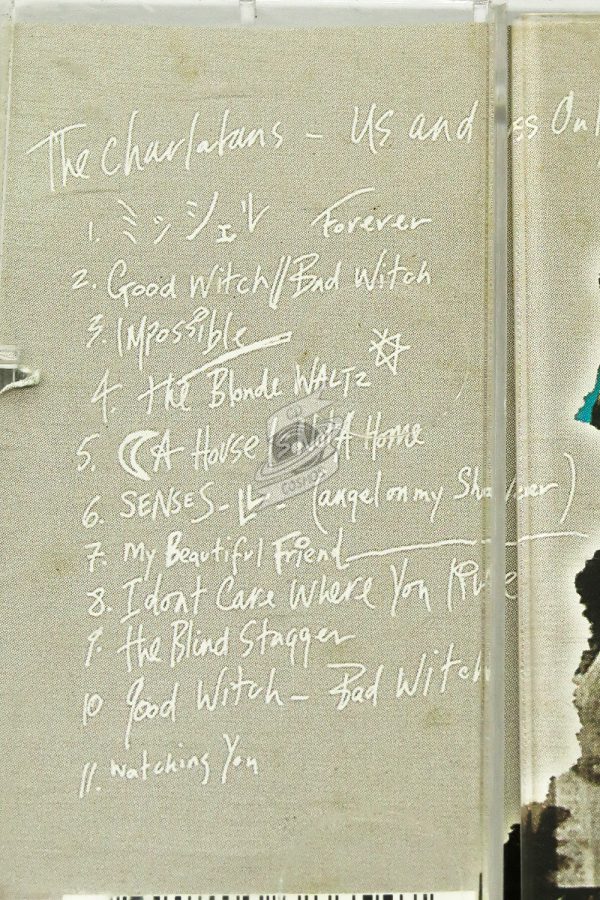 The Charlatans - Us and ss Onl
1. ミッシェル Forever
2. Good Witch//Bad Witch
3. IMpossible
4. the Blonde WALTZ
5. A House is Not A Home
6. SENSES - - (angel on my Shoulder)
7. My Beautiful Friend
8. I dont Care Where You Live
9. the Blind Stagger
10 good Witch - Bad Witch
11. watching You
COSMOS